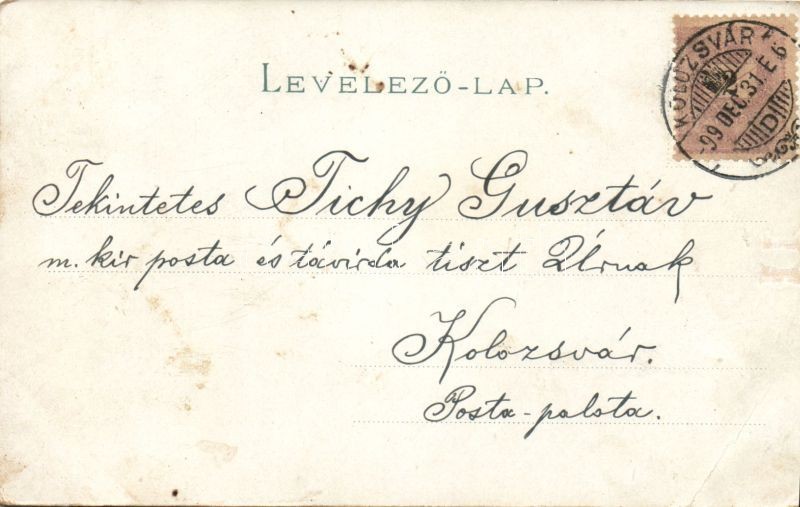 LEVELEZŐ-LAP.
KOLOZSVÁR
99 DEC. 31 E 6
D
Tekintetes Tichy Gusztáv
m. kir posta és távirda tiszt Úrnak
Kolozsvár.
Posta-palota.